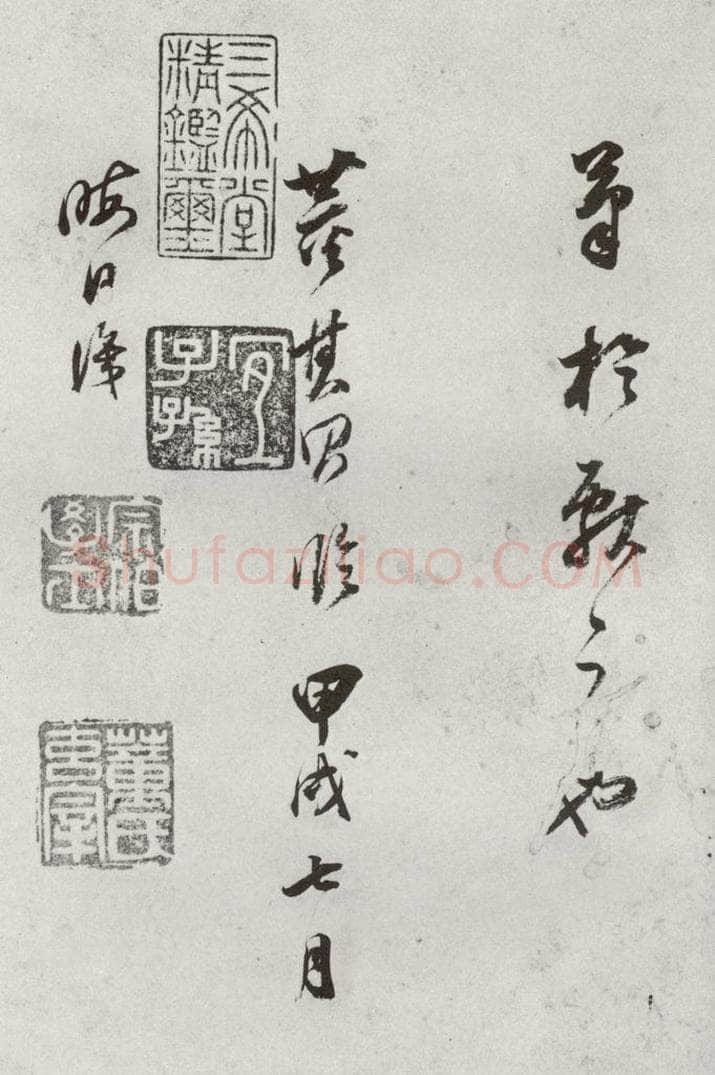 於獻之也
董其昌臨甲戌七月
晦日識
三希堂精鑑璽
宜子孫
Shufaziliao.COM